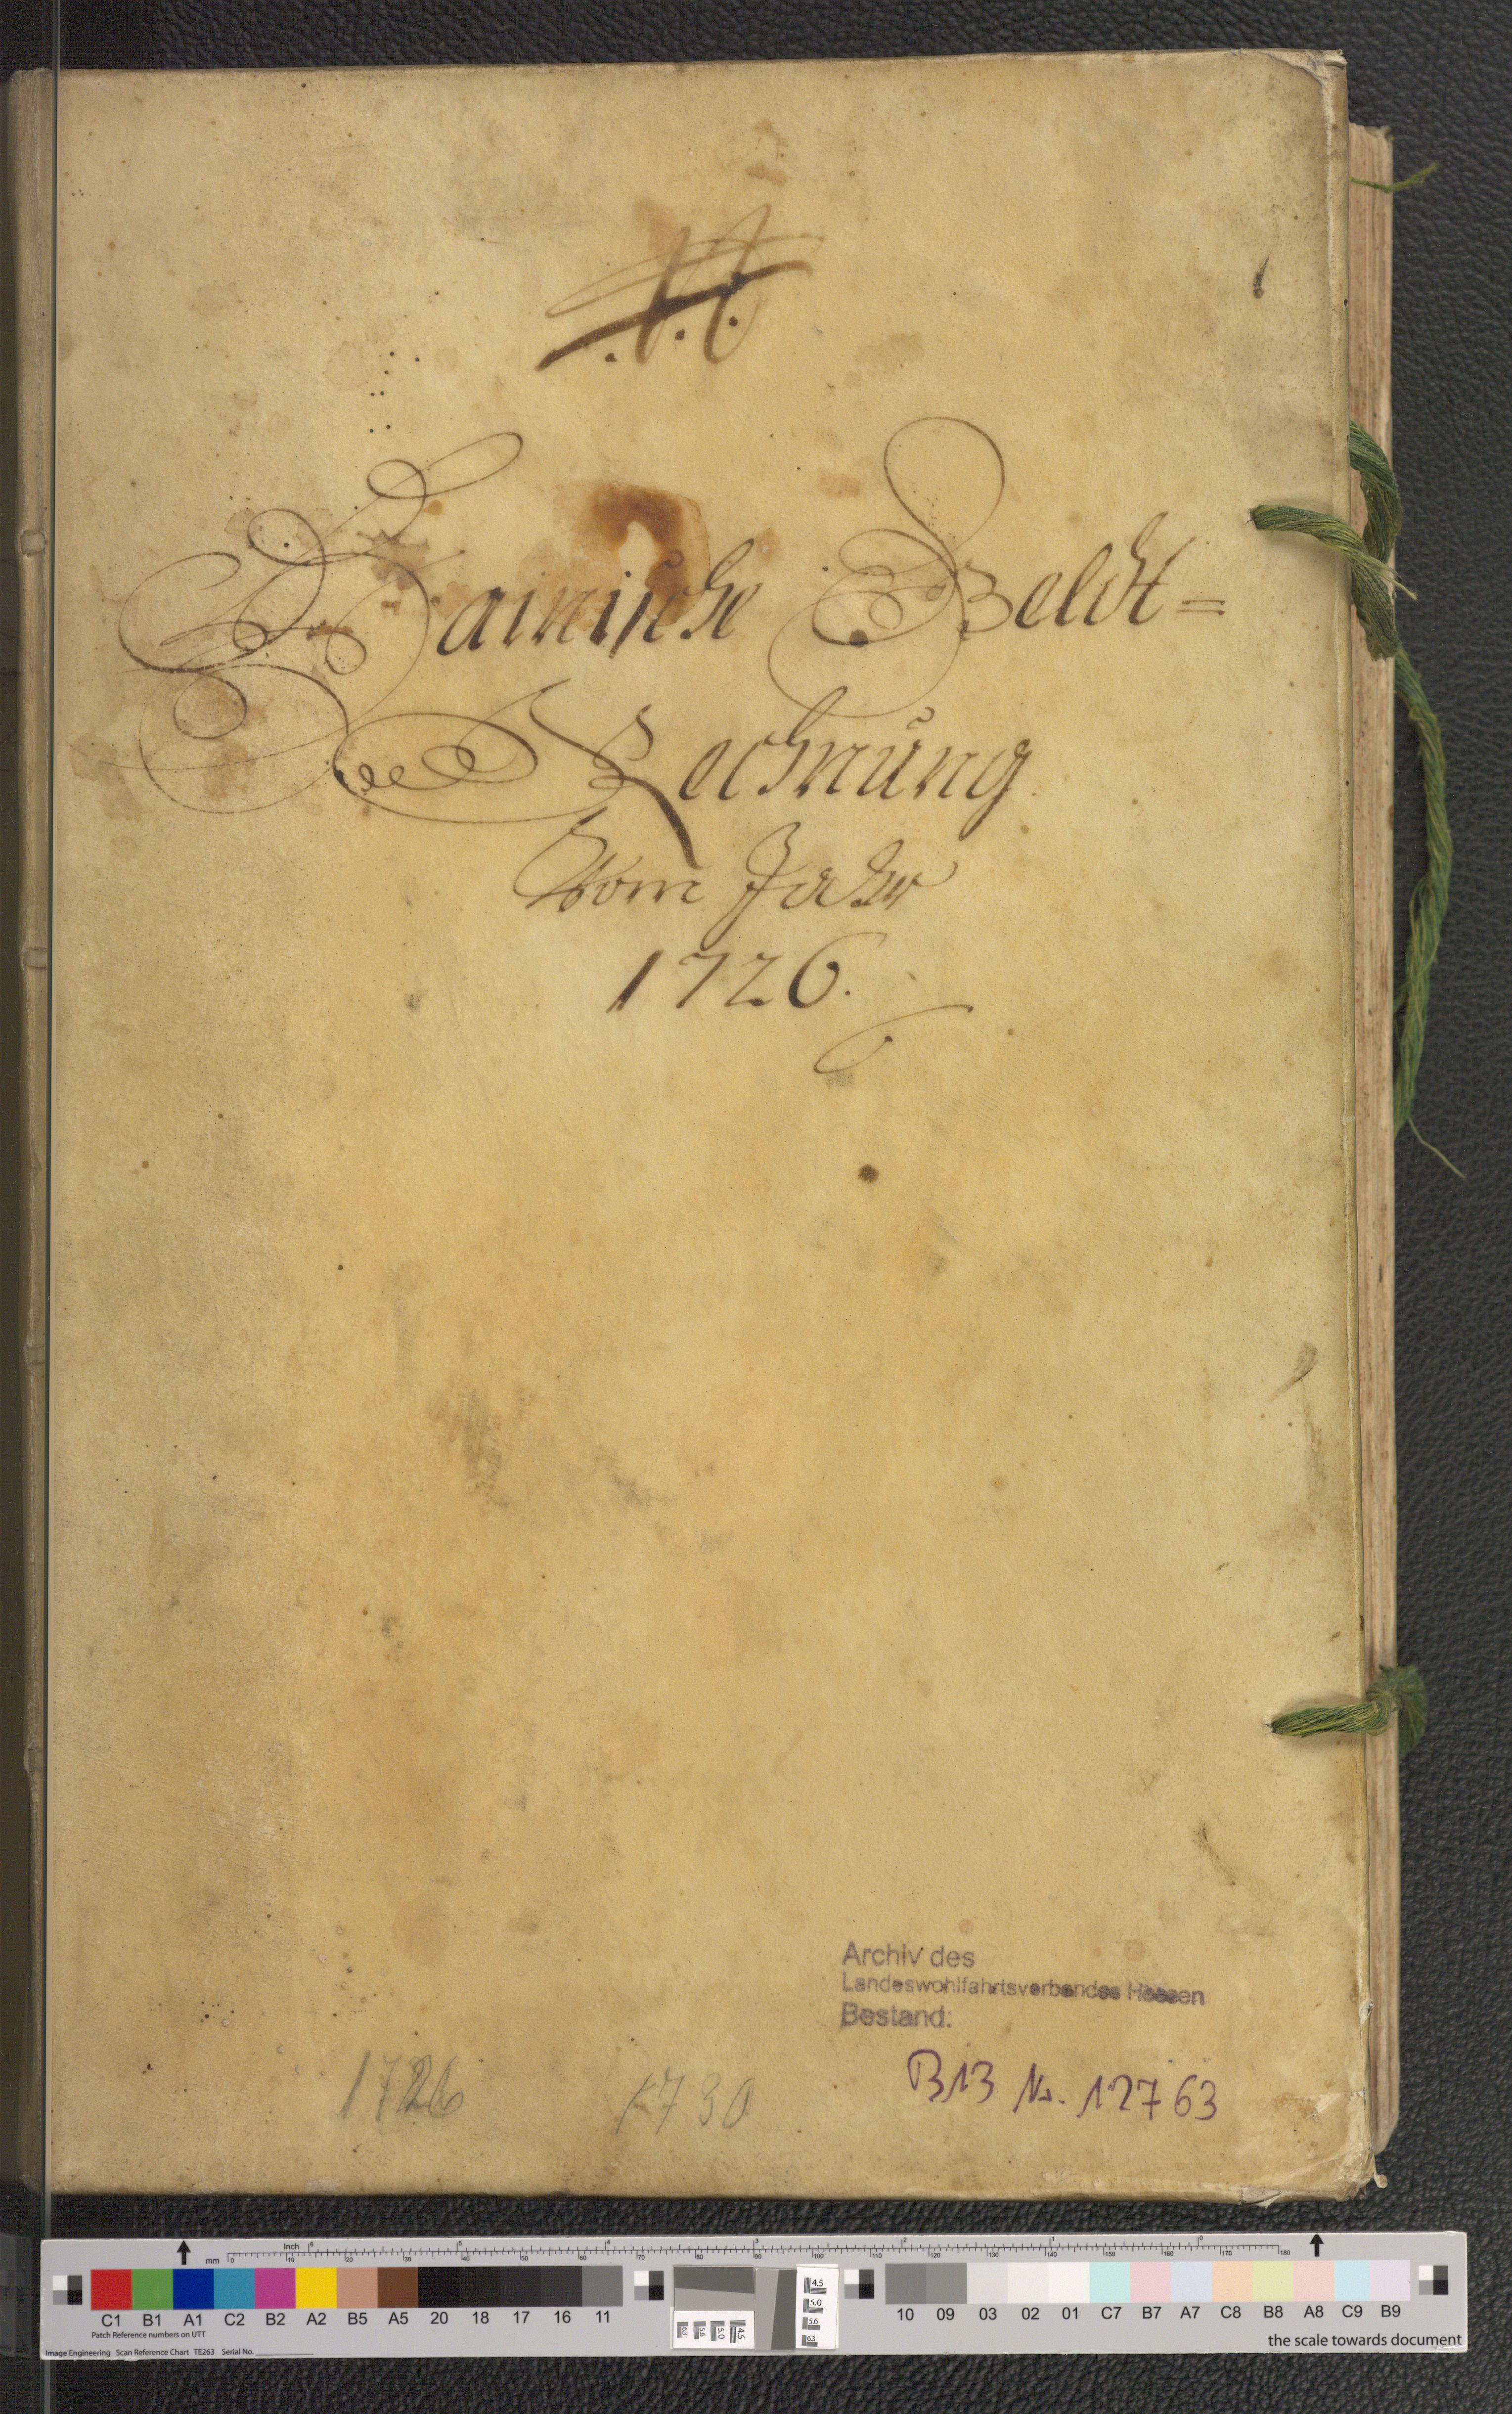 Hainische Geldt=
Rechnŭng
Vom Jahr
1726.
Archiv des
Landeswohlfahrtsverbandes Hessen
Bestand:
B13 Nr. 12763
1726
1730
mm
Inch
C1 B1 A1 C2 B2 A2 B5 A5 20 18 17 16 11
10 09 03 02 01 C7 B7 A7 C8 B8 A8 C9 B9
Patch Reference numbers on UTT
Image Engineering Scan Reference Chart TE263 Serial No.
the scale towards document